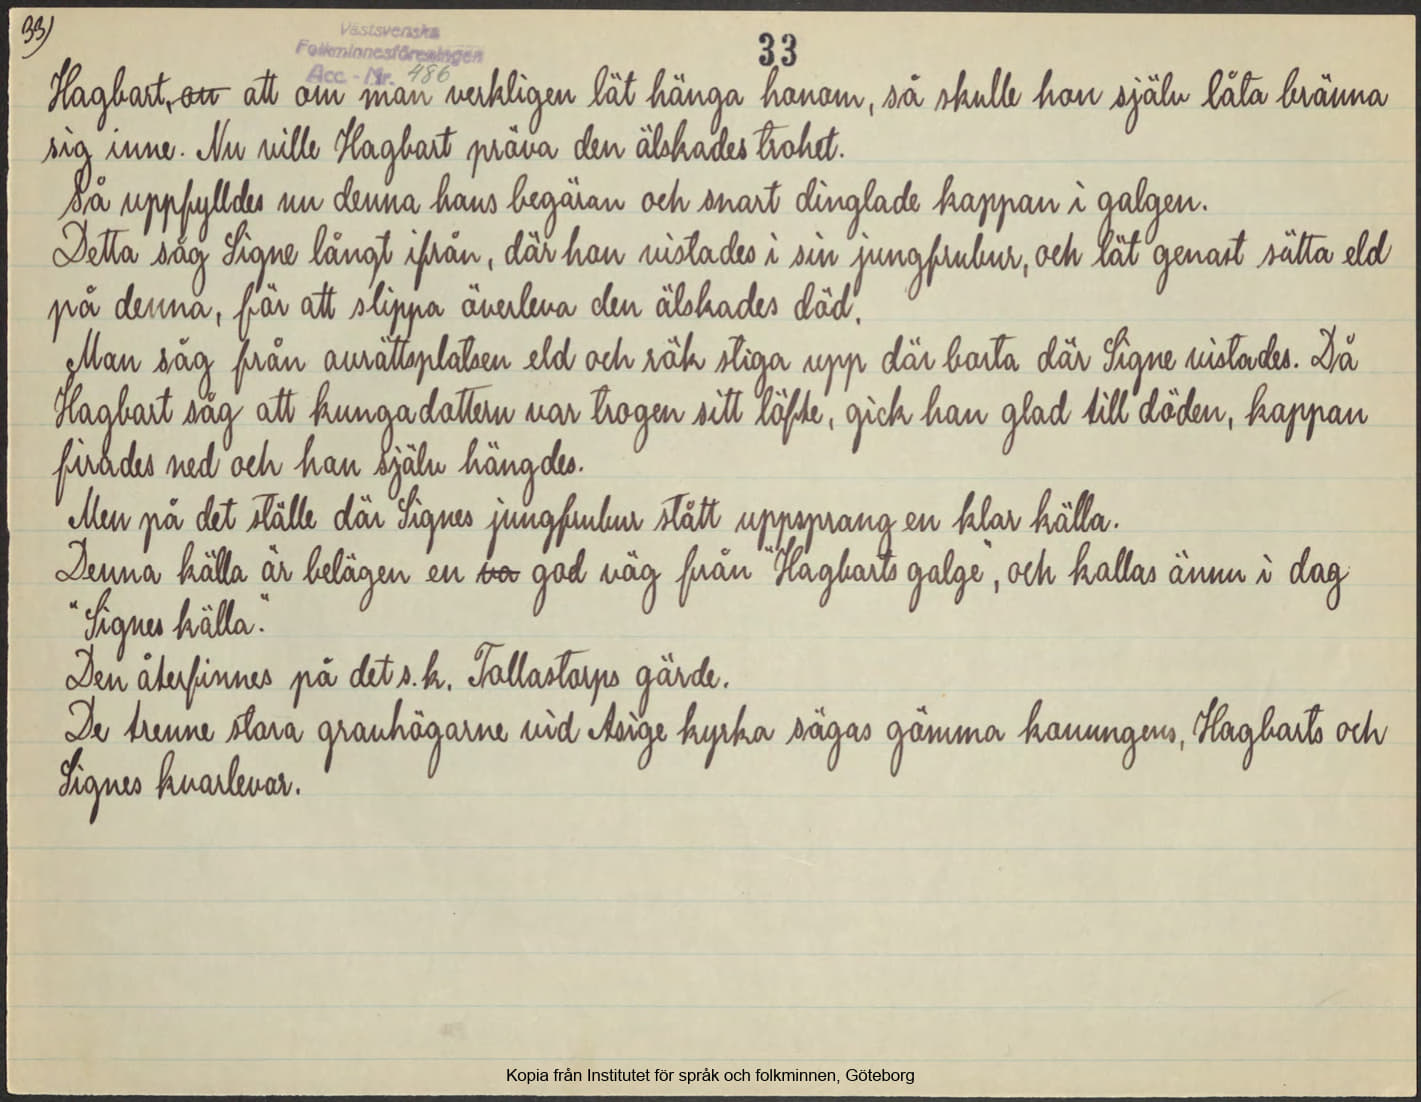 33)
Västsvenska
Folkminnesföreningen
Acc.-Nr. 486
33
Hagbart, om att om man verkligen lät hänga honom, så skulle hon själv låta bränna
sig inne. Nu ville Hagbart pröva den älskades trohet.
Så uppfylldes nu denna hans begäran och snart dinglade kappan i galgen.
Detta såg Signe långt ifrån, där hon vistades i sin jungfrubur, och lät genast sätta eld
på denna, för att slippa överleva den älskades död.
Man såg från avrättsplatsen eld och rök stiga upp där borta där Signe vistades. Då
Hagbart såg att kungadottern var trogen sitt löfte, gick han glad till döden, kappan
firades ned och han själv hängdes.
Men på det ställe där Signes jungfrubur stått uppsprang en klar källa.
Denna källa är belägen en va god väg från "Hagbarts galge", och kallas ännu i dag
"Signes källa".
Den återfinnes på det s.k. Tollastorps gärde.
De trenne stora gravhögarne vid Asige kyrka sägas gömma konungens, Hagbarts och
Signes kvarlevor.
Kopia från Institutet för språk och folkminnen, Göteborg